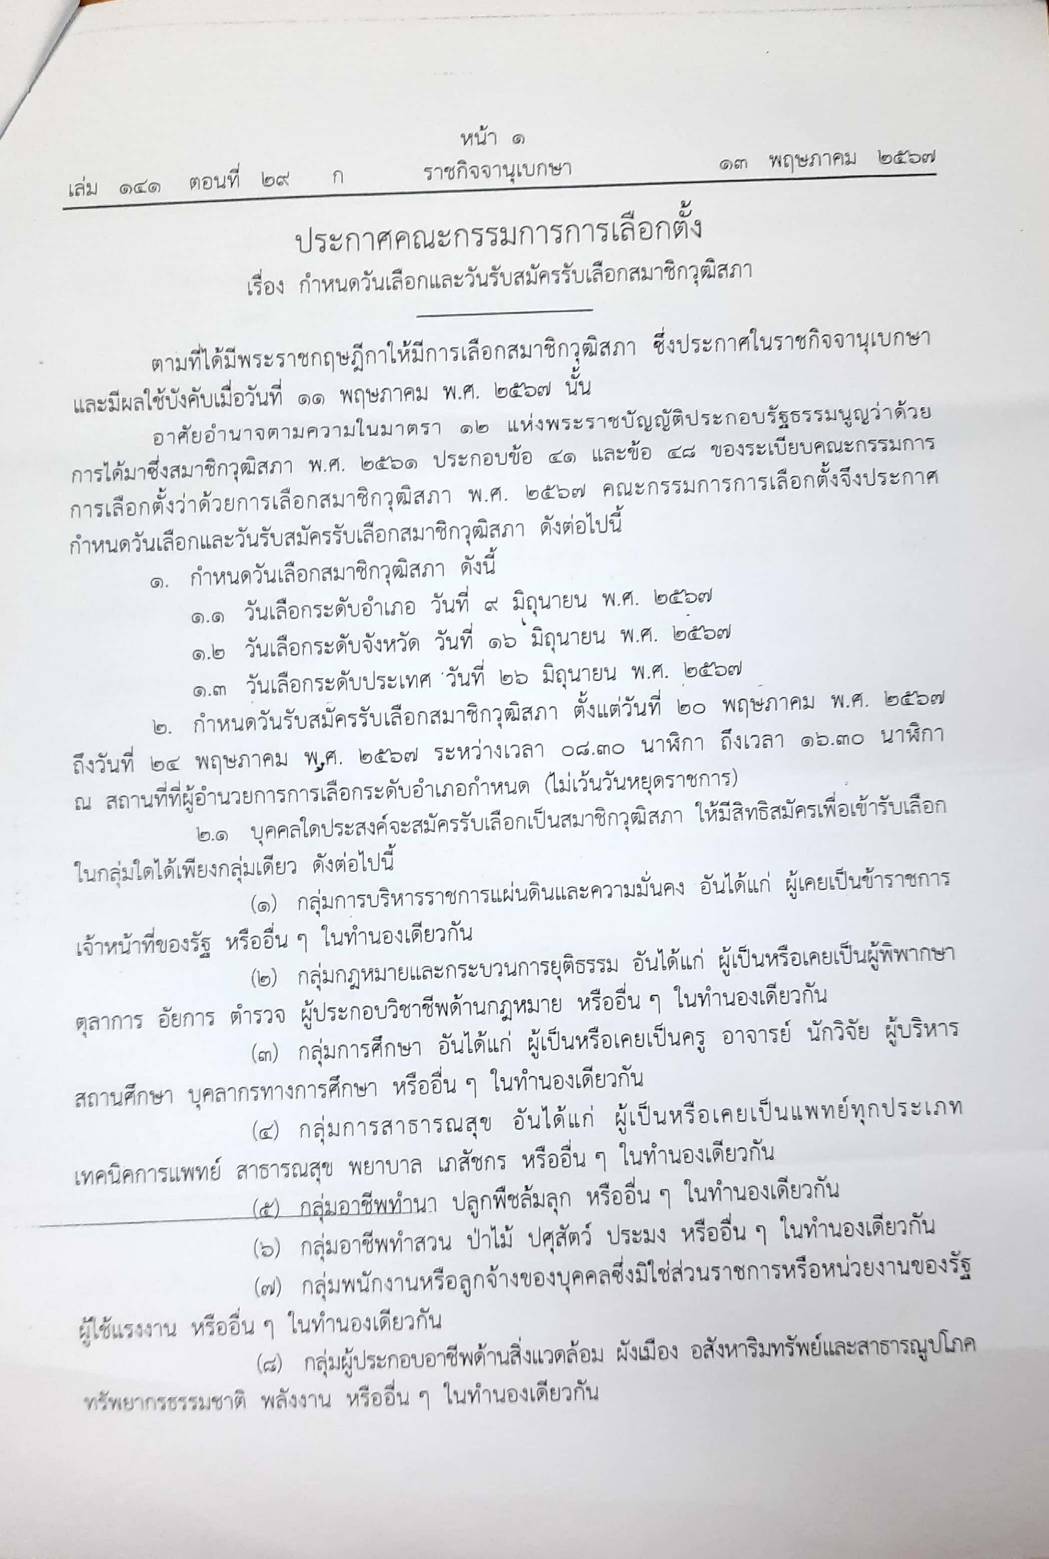 หน้า ๑
เล่ม ๑๔๑ ตอนที่ ๒๙ ก ราชกิจจานุเบกษา ๑๓ พฤษภาคม ๒๕๖๗
ประกาศคณะกรรมการการเลือกตั้ง
เรื่อง กำหนดวันเลือกและวันรับสมัครรับเลือกสมาชิกวุฒิสภา
ตามที่ได้มีพระราชกฤษฎีกาให้มีการเลือกสมาชิกวุฒิสภา ซึ่งประกาศในราชกิจจานุเบกษา
และมีผลใช้บังคับเมื่อวันที่ ๑๑ พฤษภาคม พ.ศ. ๒๕๖๗ นั้น
อาศัยอำนาจตามความในมาตรา ๑๒ แห่งพระราชบัญญัติประกอบรัฐธรรมนูญว่าด้วย
การได้มาซึ่งสมาชิกวุฒิสภา พ.ศ. ๒๕๖๑ ประกอบข้อ ๔๑ และข้อ ๔๘ ของระเบียบคณะกรรมการ
การเลือกตั้งว่าด้วยการเลือกสมาชิกวุฒิสภา พ.ศ. ๒๕๖๗ คณะกรรมการการเลือกตั้งจึงประกาศ
กำหนดวันเลือกและวันรับสมัครรับเลือกสมาชิกวุฒิสภา ดังต่อไปนี้
๑. กำหนดวันเลือกสมาชิกวุฒิสภา ดังนี้
๑.๑ วันเลือกระดับอำเภอ วันที่ ๙ มิถุนายน พ.ศ. ๒๕๖๗
๑.๒ วันเลือกระดับจังหวัด วันที่ ๑๖ มิถุนายน พ.ศ. ๒๕๖๗
๑.๓ วันเลือกระดับประเทศ วันที่ ๒๖ มิถุนายน พ.ศ. ๒๕๖๗
๒. กำหนดวันรับสมัครรับเลือกสมาชิกวุฒิสภา ตั้งแต่วันที่ ๒๐ พฤษภาคม พ.ศ. ๒๕๖๗
ถึงวันที่ ๒๔ พฤษภาคม พ.ศ. ๒๕๖๗ ระหว่างเวลา ๐๘.๓๐ นาฬิกา ถึงเวลา ๑๖.๓๐ นาฬิกา
ณ สถานที่ที่ผู้อำนวยการการเลือกระดับอำเภอกำหนด (ไม่เว้นวันหยุดราชการ)
๒.๑ บุคคลใดประสงค์จะสมัครรับเลือกเป็นสมาชิกวุฒิสภา ให้มีสิทธิสมัครเพื่อเข้ารับเลือก
ในกลุ่มใดได้เพียงกลุ่มเดียว ดังต่อไปนี้
(๑) กลุ่มการบริหารราชการแผ่นดินและความมั่นคง อันได้แก่ ผู้เคยเป็นข้าราชการ
เจ้าหน้าที่ของรัฐ หรืออื่น ๆ ในทำนองเดียวกัน
(๒) กลุ่มกฎหมายและกระบวนการยุติธรรม อันได้แก่ ผู้เป็นหรือเคยเป็นผู้พิพากษา
ตุลาการ อัยการ ตำรวจ ผู้ประกอบวิชาชีพด้านกฎหมาย หรืออื่น ๆ ในทำนองเดียวกัน
(๓) กลุ่มการศึกษา อันได้แก่ ผู้เป็นหรือเคยเป็นครู อาจารย์ นักวิจัย ผู้บริหาร
สถานศึกษา บุคลากรทางการศึกษา หรืออื่น ๆ ในทำนองเดียวกัน
(๔) กลุ่มการสาธารณสุข อันได้แก่ ผู้เป็นหรือเคยเป็นแพทย์ทุกประเภท
เทคนิคการแพทย์ สาธารณสุข พยาบาล เภสัชกร หรืออื่น ๆ ในทำนองเดียวกัน
(๕) กลุ่มอาชีพทำนา ปลูกพืชล้มลุก หรืออื่น ๆ ในทำนองเดียวกัน
(๖) กลุ่มอาชีพทำสวน ป่าไม้ ปศุสัตว์ ประมง หรืออื่น ๆ ในทำนองเดียวกัน
(๗) กลุ่มพนักงานหรือลูกจ้างของบุคคลซึ่งมิใช่ส่วนราชการหรือหน่วยงานของรัฐ
ผู้ใช้แรงงาน หรืออื่น ๆ ในทำนองเดียวกัน
(๘) กลุ่มผู้ประกอบอาชีพด้านสิ่งแวดล้อม ผังเมือง อสังหาริมทรัพย์และสาธารณูปโภค
ทรัพยากรธรรมชาติ พลังงาน หรืออื่น ๆ ในทำนองเดียวกัน